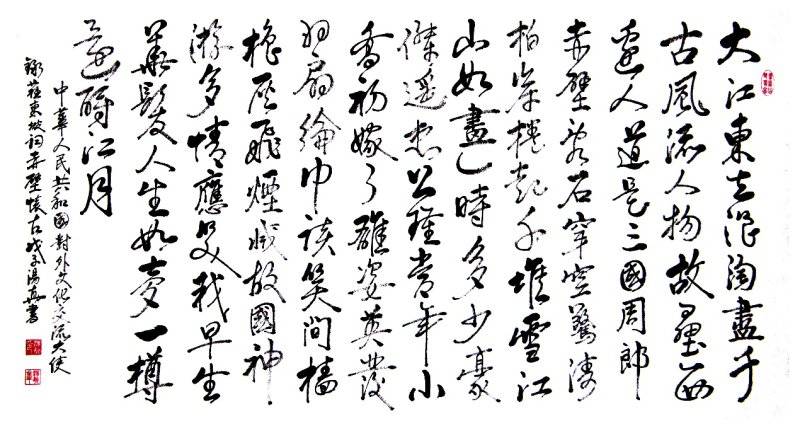 大江東去浪淘盡千
古風流人物故壘西
邊人道是三國周郎
赤壁亂石穿空驚濤
拍岸捲起千堆雪江
山如畫一時多少豪
傑遙想公瑾當年小
喬初嫁了雄姿英發
羽扇綸巾談笑間檣
櫓灰飛煙滅故國神
游多情應笑我早生
華髮人生如夢一樽
還酹江月
中華人民共和國對外文化交流大使
錄蘇東坡詞赤壁懷古戊子湯真書